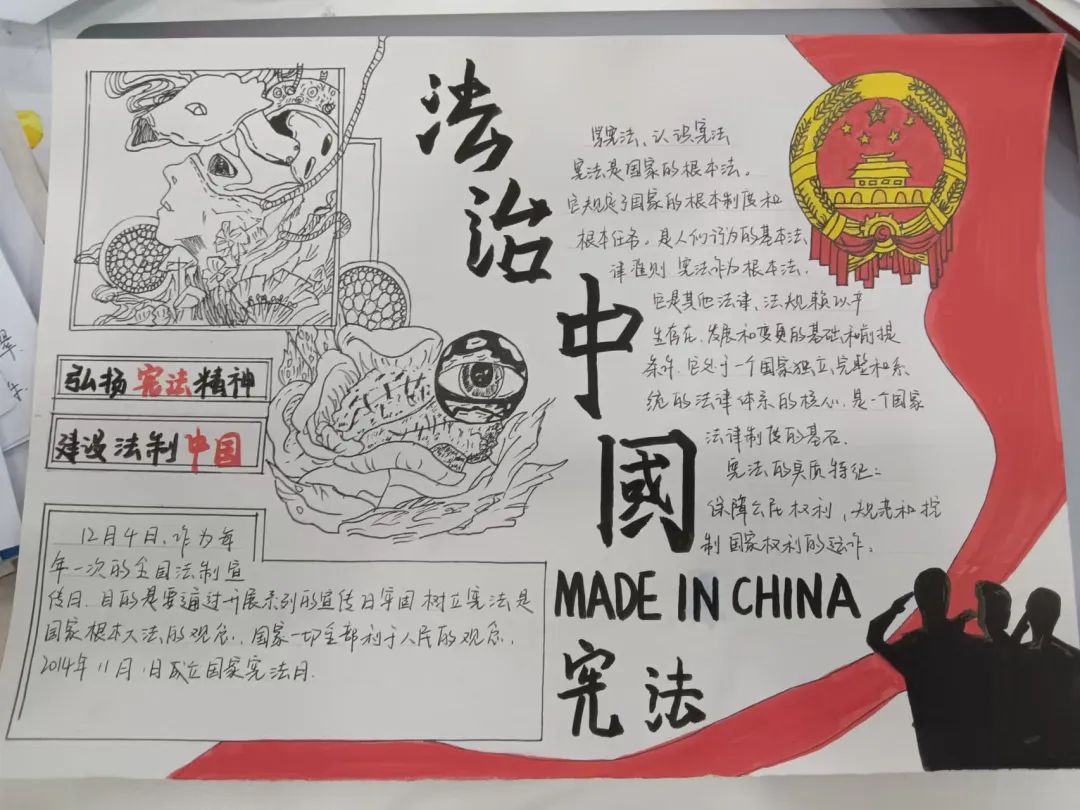 法治
中國
MADE IN CHINA
宪法
学宪法、认识宪法
宪法是国家的根本法。
它规定了国家的根本制度和
根本任务。是人们行为的基本法
律准则 宪法作为根本法，
它是其他法律、法规赖以产
生存在、发展和变更的基础和前提
条件。它处于一个国家独立，完整和系
统的法律体系的核心，是一个国家
法律制度的基石.
宪法的实质特征：
保障公民权利，规范和控
制国家权利的运作。
弘扬宪法精神
建设法制中国
12月4日，作为每
年一次的全国法制宣
传日，目的是要通过开展系列的宣传日牢固树立宪法是
国家根本大法的观念，国家一切全部利于人民的观念，
2014年11月1日成立国家宪法日.